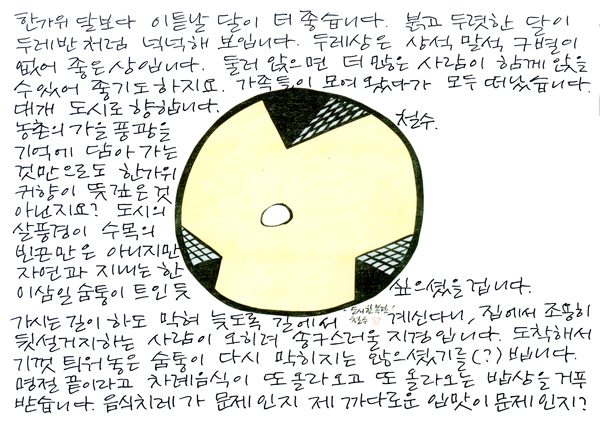 한가위 달보다 이튿날 달이 더 좋습니다. 붉고 두렷한 달이
두레반처럼 넉넉해 보입니다. 두레상은 상석 말석 구별이
없어 좋은 상입니다. 둘러 앉으면 더 많은 사람이 함께 앉을
수 있어 좋기도 하지요. 가족들이 모여 왔다가 모두 떠났습니다.
대개 도시로 향합니다.
철수.
농촌의 가을 풍광을
기억에 담아 가는
것만으로도 한가위
귀향이 뜻깊은 것
아닌지요? 도시의
살풍경이 수목의
빈곤만은 아니지만
자연과 지내는 한
이삼일 숨통이 트인 듯
싶으셨을 겁니다.
가시는 길이 하도 막혀 늦도록 길에서
계신다니, 집에서 조용히
뒷설거지하는 사람이 오히려 송구스러울 지경입니다. 도착해서
기껏 틔워놓은 숨통이 다시 막히지는 않으셨기를(?) 빕니다.
명절 끝이라고 차례음식이 또 올라오고 또 올라오는 밥상을 거푸
받습니다. 음식치레가 문제인지 제 까다로운 입맛이 문제인지?